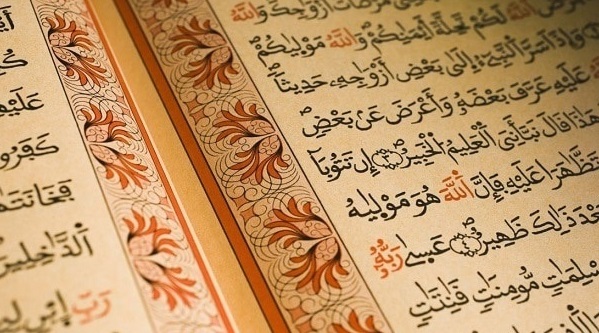 مَرْضَاتَ أَزْوَٰجِكَ وَٱللَّهُ
ٱللَّهُ لَكُمْ تَحِلَّةَ أَيْمَٰنِكُمْ وَٱللَّهُ مَوْلَىٰكُمْ
وَإِذْ أَسَرَّ ٱلنَّبِيُّ إِلَىٰ بَعْضِ أَزْوَٰجِهِۦ حَدِيثًا
ٱللَّهُ عَلَيْهِ عَرَّفَ بَعْضَهُۥ وَأَعْرَضَ عَنۢ بَعْضٍ
هَٰذَا قَالَ نَبَّأَنِيَ ٱلْعَلِيمُ ٱلْخَبِيرُ ٣ إِن تَتُوبَآ
تَظَٰهَرَا عَلَيْهِ فَإِنَّ ٱللَّهَ هُوَ مَوْلَىٰهُ
بَعْدَ ذَٰلِكَ ظَهِيرٌ ٤ عَسَىٰ رَبُّهُۥٓ
مُسْلِمَٰتٍ مُّؤْمِنَٰتٍ قَٰنِتَٰتٍ
عَلَيْهِمْ
كَفَرُوا
ٱلدَّٰخِلِينَ
رَبِّ ٱبْنِ لِي